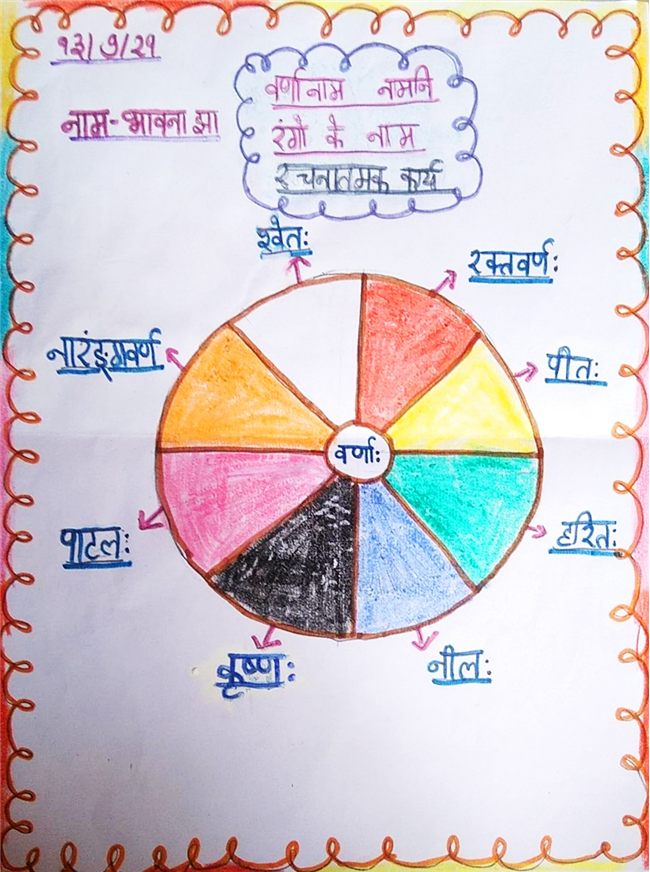 १३/७/२१
नाम-भावना झा
वर्णानाम नमनि
रंगों के नाम
रचनातमक कार्य
श्वेतः
रक्तवर्णः
नारंङ्गवर्ण
पीतः
वर्णाः
पाटलः
हरितः
कृष्णः
नीलः